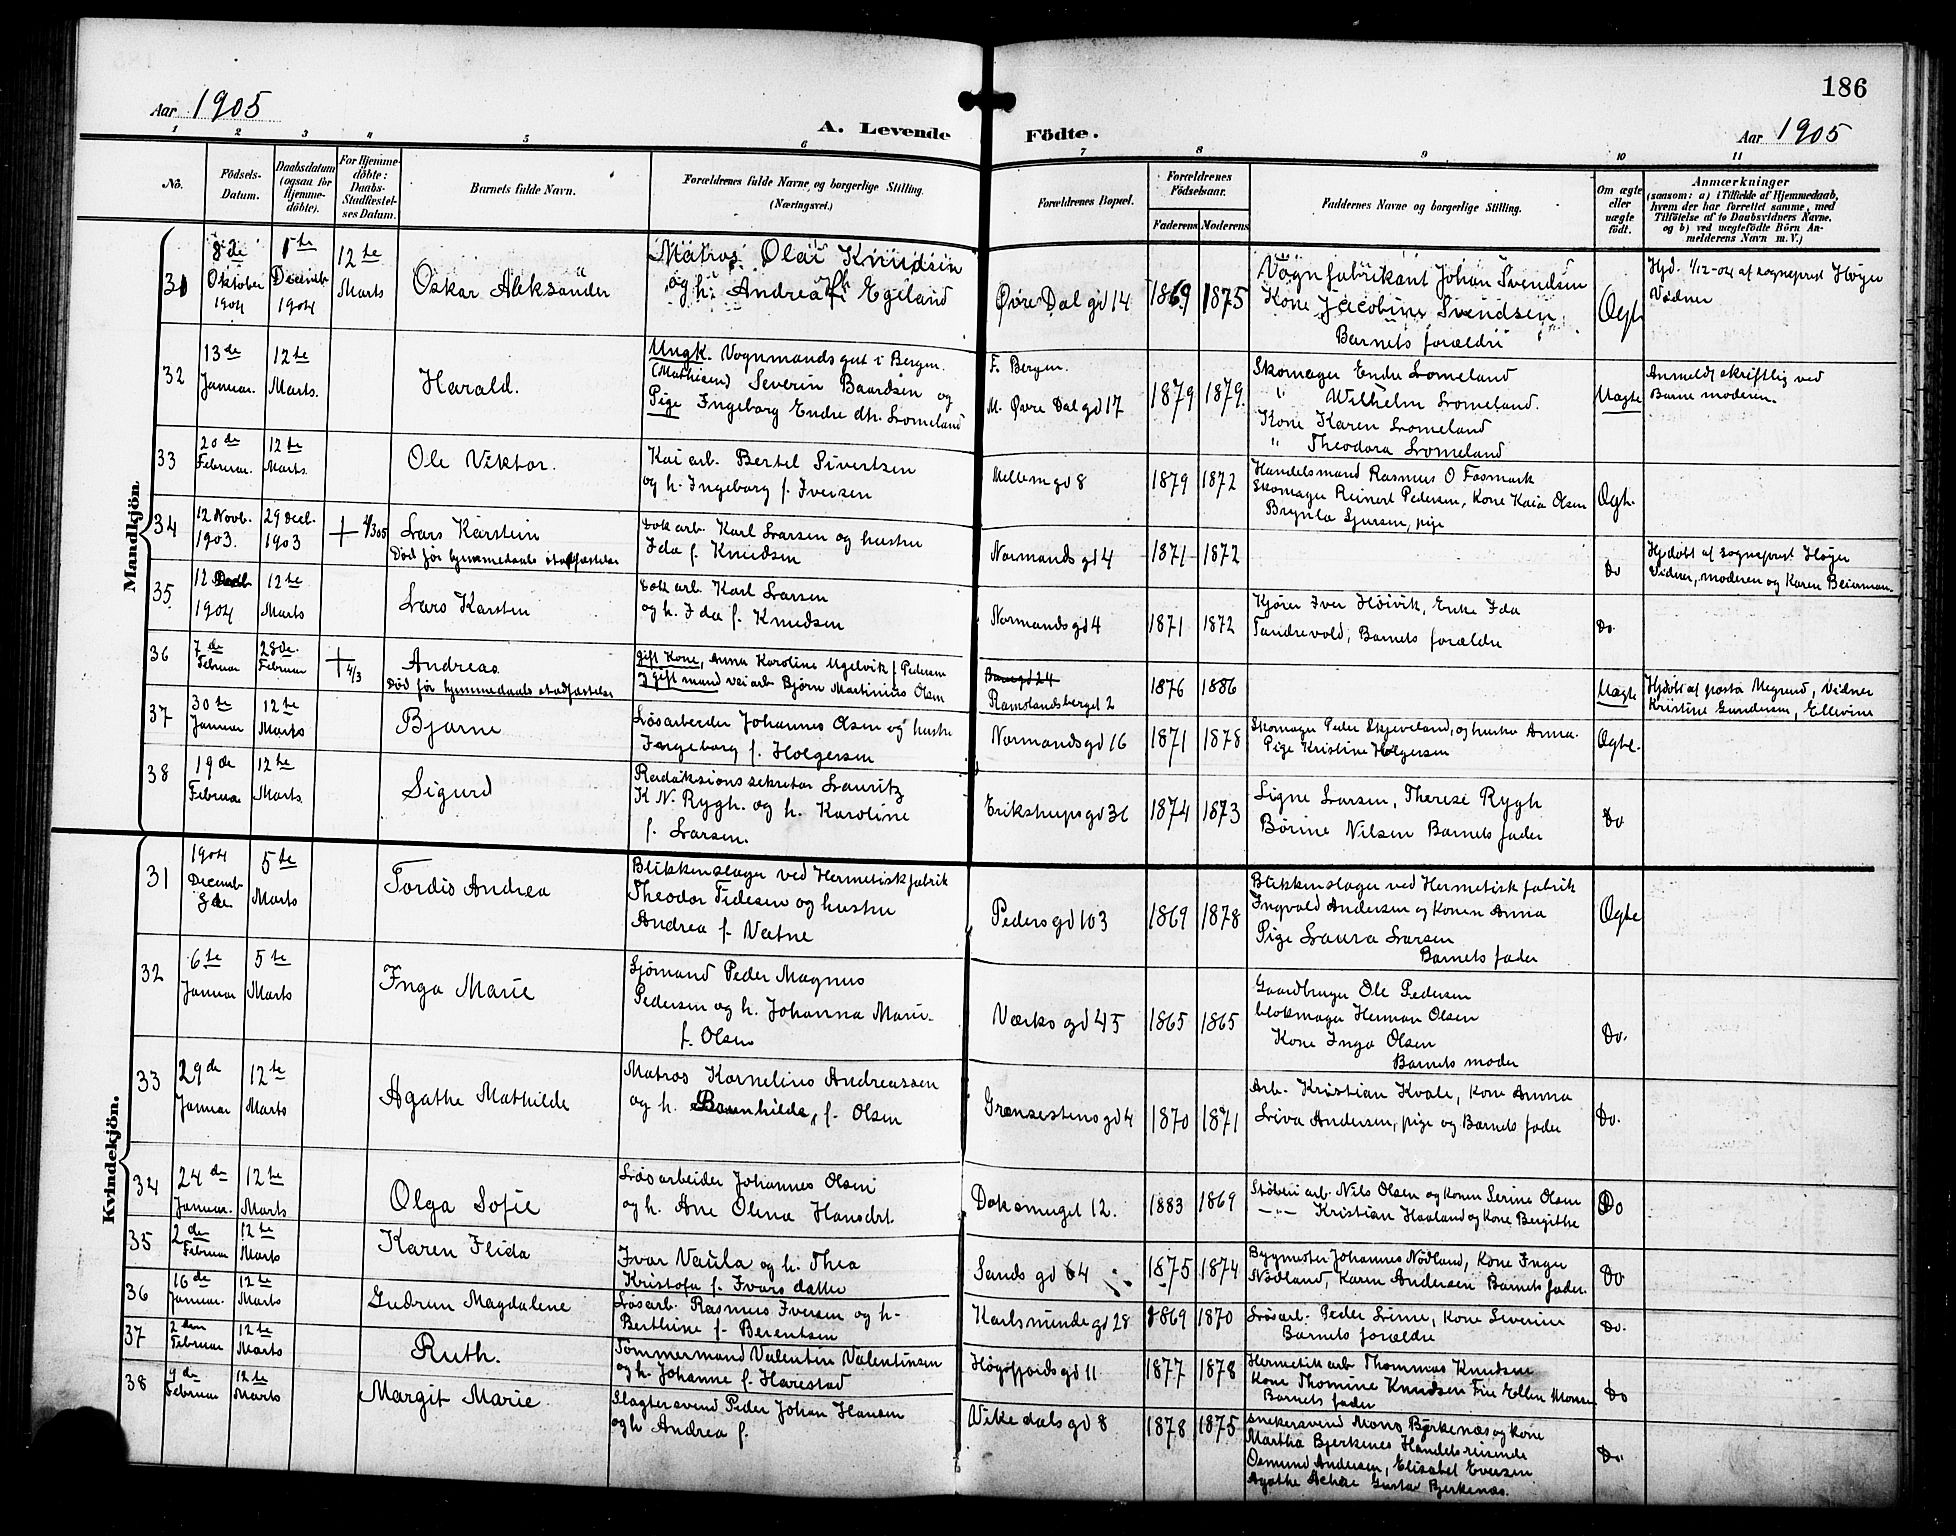 186
Aar 1905
A. Levende Födte.
Aar 1905
1 2 3 4 5 6 7 8 9 10 11
No.
Födsels-Datum.
Daabsdatum (ogsaa for Hjemme-döbte).
For Hjemme-döbte: Daabs-Stadfæstel-ses Datum.
Barnets fulde Navn.
Forældrenes fulde Navne, og borgerlige Stilling.
(Næringsvei.)
Forældrenes Bopæl.
Forældrenes Födselsaar.
Faderens Moderens
Faddernes Navne og borgerlige Stilling.
Om ægte eller uægte födt.
Anmærkninger
(saasom: a) i Tilfælde af Hjemmedaab,
hvem der har forrettet samme, med
Tilföielse af to Daabsvidners Navne,
og b) ved uægtefödte Börn An-
melderens Navn m. V.)
Mandkjön.
31
8de Oktober 1904
1te Decemb 1904
12te Marts
Oskar Aleksander
Matros Olai Knudsen
og h. Andrea f. Egeland
Øvre Dal gd 14
1869 1875
Vognfabrikant Johan Svendsen
Kone Jacobine Svendsen
Barnets forældre
Ægte
Hjd. 1/12-04 af sogneprest Høyer
Vidner
32
13de Januar.
12te Marts.
Harald.
Ungk. Vognmandsgut i Bergen.
(Mathisen) Severin Baardsen og
Pige Ingeborg Endre dtr. Lomeland
F. Bergen.
M. Øvre Dal gd 17
1879 1879.
Skomager Endre Lomeland
" Wilhelm Lomeland.
Kone Karen Lomeland
" Theodora Lomeland
Uægte
Anmeldt skriftlig ved
Barnemoderen.
33
20de Februar.
12te Marts.
Ole Viktor.
Kaiarb. Bertel Sivertsen
og h. Ingeborg f. Iversen
Mellemgd 8
1879 1872
Handelsmand Rasmus O Fosmark
Skomager Reinert Pedersen, Kone Kaia Olsen
Brynla Sjursen, pige
Ægte.
34
12 Novb. 1903.
29 Decb. 1903
+ 4/3 05
Lars Karstein
Død før hjemmedaabs stadfæstelse
Dokarb. Karl Larsen og hustru
Ida f. Knudsen
Normandsgd 4
1871 1872
Do
Hjdøbt af sogneprest Høyer
Vidner, moderen og Karen Beierman.
35
12 1904
12te Marts
Lars Karsten
Dokarb. Karl Larsen
og h. Ida f. Knudsen
Normandsgd 4
1871 1872
Kjører Iver Høivik, Enke Ida
Tandrevold, Barnets forældre
Do.
36
7de Februar
28de. Februar
+ 4/3
Andreas
Død før hjemmedaabs stadfæstelse
gift Kone, Anna Karoline Ugelvik f. Pedersen
gift mand veiarb Bjørn Martinius Olsen
Ramslandsberget 2
1876 1886
Uægte
Hjdøbt af pastor Megrund, Vidner
Kristine Gundersen, Ellevine
37
30te Januar
12te Marts
Bjarne
Løsarbeider Johannes Olsen og hustru
Ingeborg f. Holgersen
Normandsgd 16
1871 1878
Skomager Peder Skjeveland, og hustru Anna.
Pige Kristine Holgersen
Ægte.
38
19de Februar
12te Marts.
Sigurd
Redaktionssekretær Lauritz
K N. Rygh. og h. Karoline
f. Larsen.
Erikstrupsgd 36
1874 1873
Signe Larsen, Therese Rygh
Børine Nilsen Barnets fader
Do
Kvindekjön.
31
1904 Decemb 3de
5te Marts
Tordis Andrea
Blikkenslager ved Hermetikfabrik
Theodor Tidesen og hustru
Andrea f. Vatne
Pedersgd 103
1869 1878
Blikkenslager ved Hermetikfabrik
Ingvald Andersen og Konen Anna
Pige Laura Larsen
Barnets fader
Ægte
32
6te Januar
5te Marts
Inga Marie
Sjømand Peder Magnus
Pedersen og h. Johanna Marie
f. Olsen
Værksgd 45
1865 1865
Gaardbruger Ole Pedersen
blokmager Herman Olsen
Kone Inga Olsen
Barnets moder
Do.
33
29de Januar
12te Marts
Agathe Mathilde
Matros Kornelius Andreassen
og h. Brunhilda, f. Olsen
Grensestensgd 4
1870 1871
Arb. Kristian Kvale, kone Anna
Liva Andersen, pige og Barnets fader
Do.
34
24de Januar.
12te Marts.
Olga Sofie
Løsarbeider Johannes Olsen
og h. Ane Olena Hansdtr.
Doksmuget 12.
1883 1869
Støberiarb. Nils Olsen og konen Serine Olsen
—"— Kristian Haaland og kone Bergithe
Do
35
2den Februar
12te Marts
Karen Elida
Ivar Vaula og h. Thea
Kristofa f. Ivars datter
Sandsgd 64
1875 1874
Bygmester Johannes Nödland, Kone Inger
Nödland, Karen Andersen Barnets fader.
Do
36
16de Januar.
12te Marts
Gudrun Magdalene
Løsarb. Rasmus Iversen og h.
Berthine f. Berentsen
Karlsmindegd 28
1869 1870
Løsarb. Peder Lime, Kone Severine
Barnets forældre
Do.
37
2den Februar
12te Marts
Ruth.
Tømmermand Valentin Valentinsen
og h. Johanne f. Harestad
Høgsfjordsgd 11
1877 1878
Hermetikarb Thommas Knudsen
Kone Thomine Knudsen Fru Ellen Monsen
Barnets fader
Do
38
9de Februar
12te Marts
Margit Marie
Slagtersvend Peder Johan Hansen
og h Andrea f.
Vikedalsgd 8
1878 1875
Snekersvend Mons Bjerkenæs og kone
Martha Bjerkenes Handelsreisende
Osmund Andersen, Elisabet Eversen
Agathe Gustav Bjerkenæs.
Do.